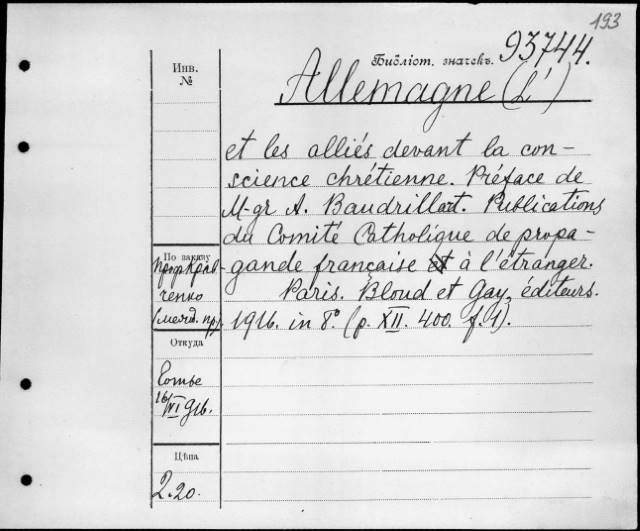 193
Библіот. значекъ. 93744.
Инв.
№
Allemagne (L')
et les alliés devant la con-
science chrétienne. Préface de
M-gr A. Baudrillart. Publications
du Comité Catholique de propa-
gande française à l'étranger.
Paris. Bloud et Gay, éditeurs.
1916. in 8° (p. XII. 400. f. 1).
По заказу
проф Крав-
ченко
(межд. пр.)
Откуда
16/VI 916.
Цѣна
2.20.